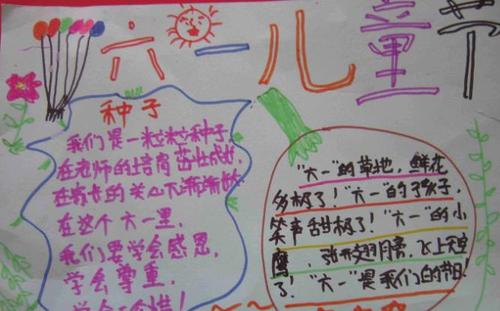 六一儿童节
种子
我们是一粒粒种子,
在老师的培育茁壮成长,
在家长的关心下渐渐
在这个六一里,
我们要学会感恩,
学会尊重,
学会
"六一"的草地,鲜花
多极了!"六一"的孩子,
笑声甜极了!"六一"的小
鹰,张开翅膀,飞上天空
了!"六一"是我们的节日!